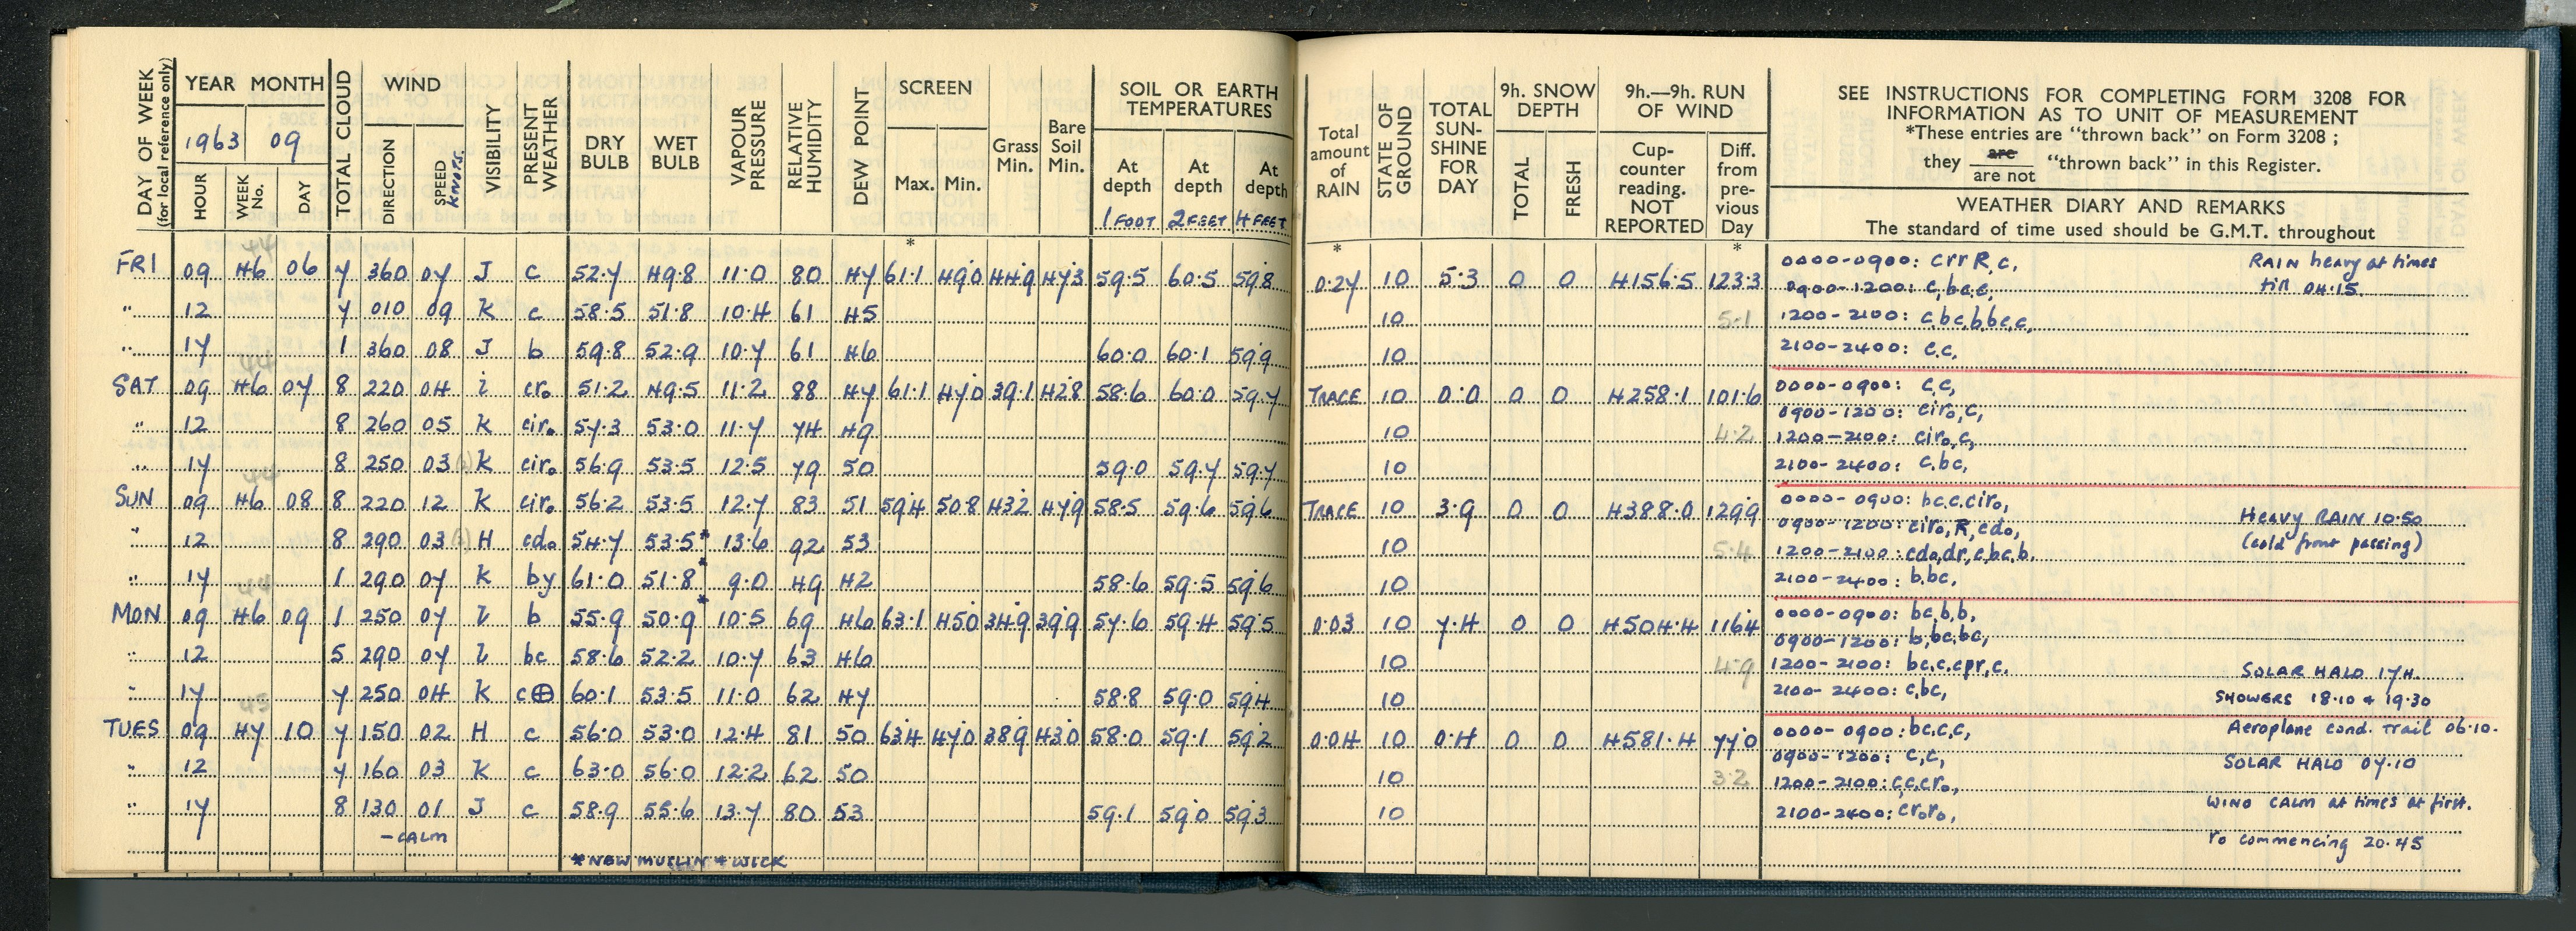 DAY OF WEEK
(for local reference only)
YEAR MONTH
1963 09
HOUR WEEK No. DAY
TOTAL CLOUD
WIND
DIRECTION SPEED KNOTS.
VISIBILITY
PRESENT WEATHER
DRY BULB
WET BULB
VAPOUR PRESSURE
RELATIVE HUMIDITY
DEW POINT
SCREEN
Max. Min.
Grass Min.
Bare Soil Min.
SOIL OR EARTH TEMPERATURES
At depth At depth At depth
1 FOOT 2 FEET 4 FEET
*
44
FRI 09 46 06 7 360 07 J c 52.7 49.8 11.0 80 47 61.1 49.0 44.9 47.3 59.5 60.5 59.8
" 12 7 010 09 K c 58.5 51.8 10.4 61 45
" 17 1 360 08 J b 59.8 52.9 10.7 61 46 60.0 60.1 59.9
44
SAT 09 46 07 8 220 04 i cr₀ 51.2 49.5 11.2 88 47 61.1 47.0 39.1 42.8 58.6 60.0 59.7
" 12 8 260 05 K cir₀ 57.3 53.0 11.7 74 49
" 17 8 250 03 K cir₀ 56.9 53.5 12.5 79 50 59.0 59.7 59.7
44
SUN 09 46 08 8 220 12 K cir₀ 56.2 53.5 12.7 83 51 59.4 50.8 43.2 47.9 58.5 59.6 59.6
" 12 8 290 03 H cd₀ 54.7 53.5* 13.6 92 53
" 17 1 290 07 K by 61.0 51.8* 9.0 49 42 58.6 59.5 59.6
44
MON 09 46 09 1 250 07 l b 55.9 50.9* 10.5 69 46 63.1 45.0 34.9 39.9 57.6 59.4 59.5
" 12 5 290 07 l bc 58.6 52.2 10.7 63 46
" 17 7 250 04 K c⊕ 60.1 53.5 11.0 62 47 58.8 59.0 59.4
45
TUES 09 47 10 7 150 02 H c 56.0 53.0 12.4 81 50 63.4 47.0 38.9 43.0 58.0 59.1 59.2
" 12 7 160 03 K c 63.0 56.0 12.2 62 50
" 17 8 130 01 J c 58.9 55.6 13.7 80 53 59.1 59.0 59.3
-CALM
* NEW MUSLIN & WICK
Total amount of RAIN
STATE OF GROUND
TOTAL SUN-SHINE FOR DAY
9h. SNOW DEPTH
TOTAL FRESH
9h.—9h. RUN OF WIND
Cup-counter reading. NOT REPORTED
Diff. from pre-vious Day
SEE INSTRUCTIONS FOR COMPLETING FORM 3208 FOR
INFORMATION AS TO UNIT OF MEASUREMENT
*These entries are "thrown back" on Form 3208 ;
they are / are not "thrown back" in this Register.
WEATHER DIARY AND REMARKS
The standard of time used should be G.M.T. throughout
* *
0.27 10 5.3 0 0 4156.5 123.3
10 5.1
10
TRACE 10 0.0 0 0 4258.1 101.6
10 4.2
10
TRACE 10 3.9 0 0 4388.0 129.9
10 5.4
10
0.03 10 7.4 0 0 4504.4 116.4
10 4.9
10
0.04 10 0.4 0 0 4581.4 77.0
10 3.2
10
0000-0900: crrR,c, RAIN heavy at times
0900-1200: c,bc,c, till 04.15.
1200-2100: c,bc,bbc,c,
2100-2400: c,c,
0000-0900: c,c,
0900-1200: cir₀,c,
1200-2100: cir₀,c,
2100-2400: c,bc,
0000-0900: bc,c,cir₀,
0900-1200: cir₀,R,cd₀, Heavy RAIN 10.50
1200-2100: cd₀,dr,c,bc,b. (cold front passing)
2100-2400: b,bc,
0000-0900: bc,b,b,
0900-1200: b,bc,bc,
1200-2100: bc,c,cpr,c. SOLAR HALO 17H.
2100-2400: c,bc, SHOWERS 18.10 & 19.30
0000-0900: bc,c,c, Aeroplane cond. trail 06.10.
0900-1200: c,c, SOLAR HALO 07.10
1200-2100: c,c,cr₀,
2100-2400: cr₀r₀, WIND CALM at times at first.
r₀ commencing 20.45